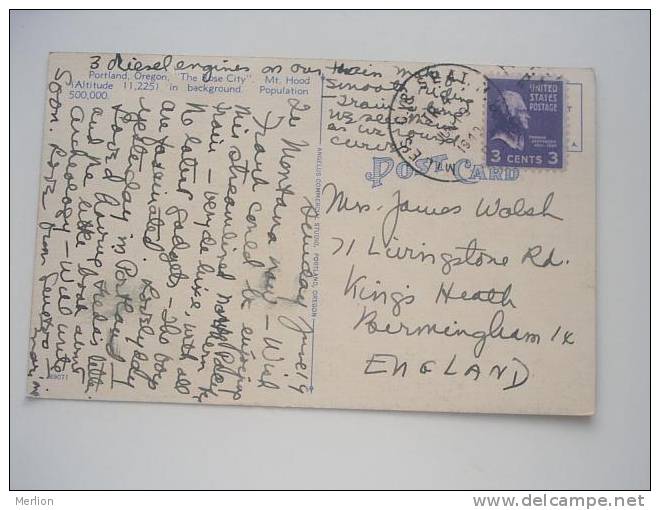 3 diesel engines on our train make
smooth riding
Train
we see
as we
curves
Portland, Oregon, "The Rose City". Mt. Hood
(Altitude 11,225) in background. Population
500,000.
Sunday June 19
In Montana now – Wish
Frank could be enjoying
this streamlined
train – very de luxe, with all
the latter gadgets – The boys
are fascinated. Lovely day
yesterday in Portland – I
loved having Hedes letter
and the little book about
Archeology – Will write
soon. Love from
Marion
69071
ANGELUS COMMERCIAL STUDIO, PORTLAND, OREGON
POST CARD
UNITED
STATES
POSTAGE
3 CENTS 3
Mrs. James Walsh
71 Livingstone Rd.
Kings Heath
Bermingham 14
ENGLAND
Merlion
www.delcampe.net